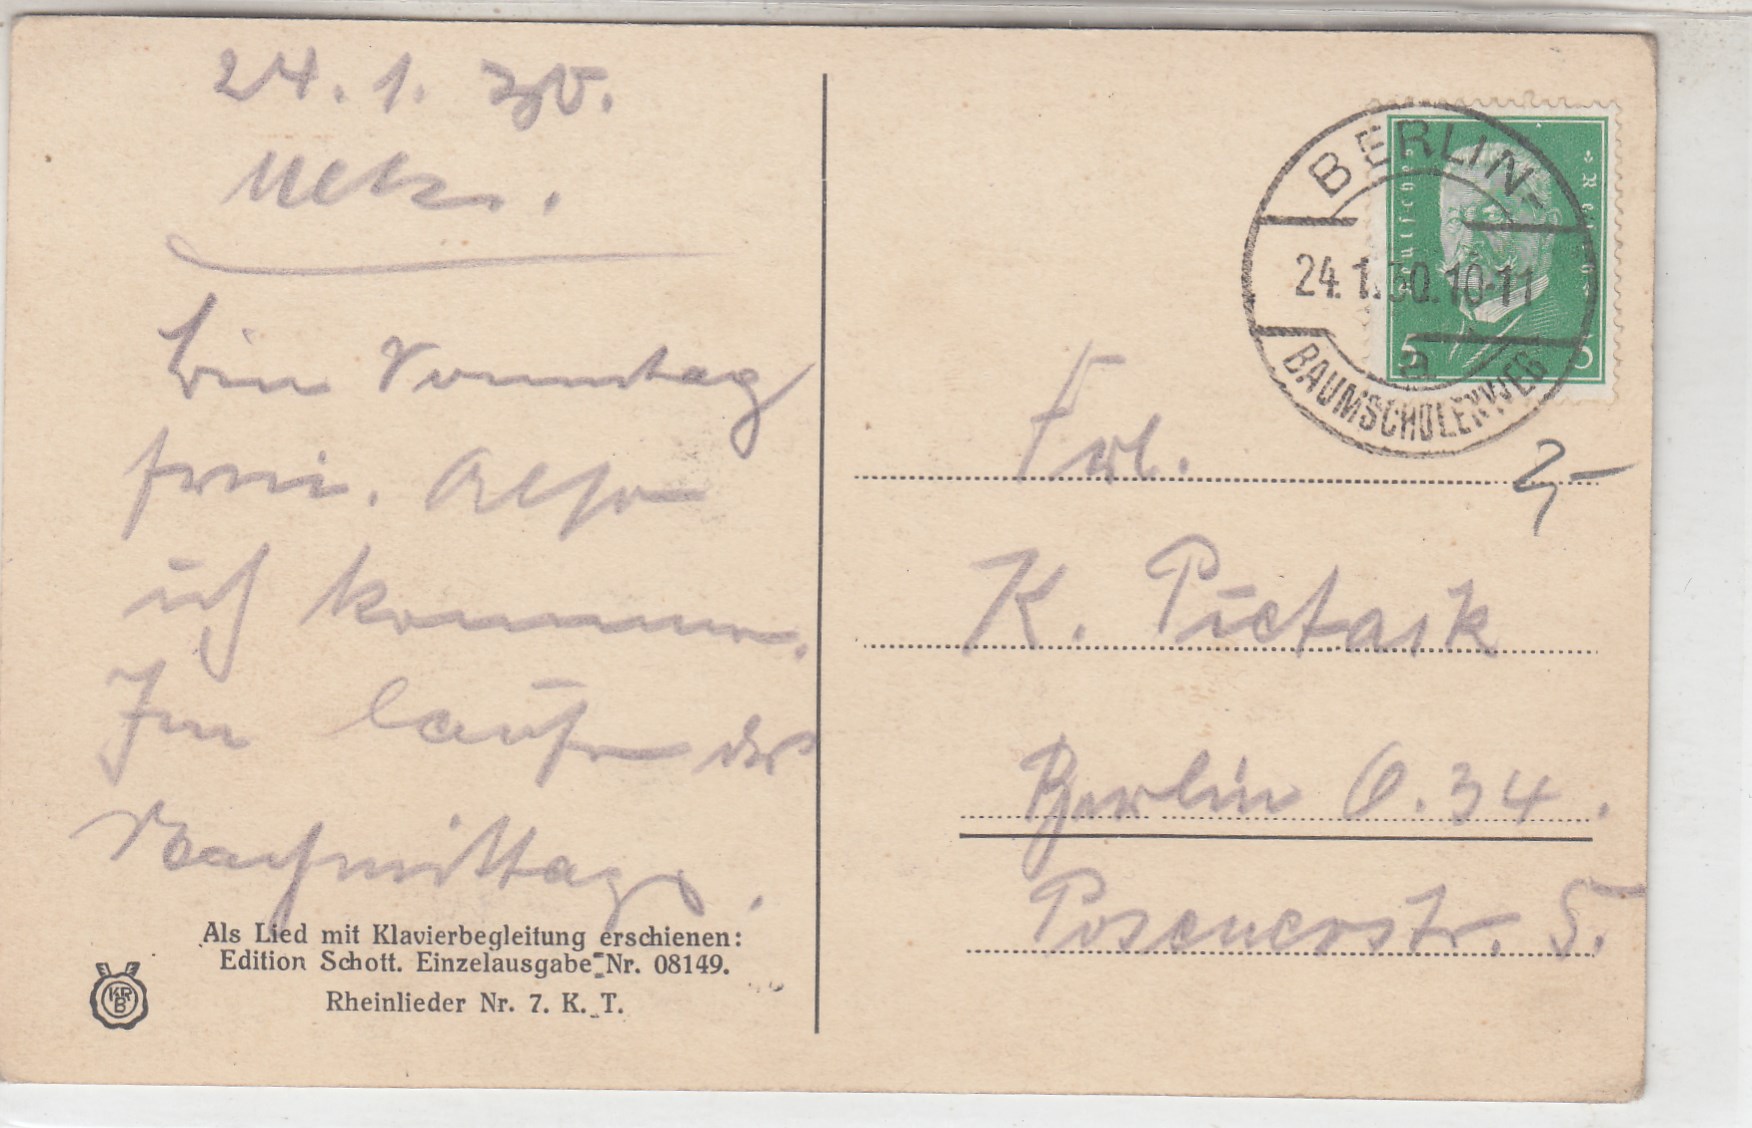 24. 1. 30.
Bin Sonntag
frei. Also
ich komme.
Im laufe des
Nachmittags.
Als Lied mit Klavierbegleitung erschienen:
Edition Schott. Einzelausgabe Nr. 08149.
Rheinlieder Nr. 7. K. T.
KRB
BERLIN-
24.1.30.10-11
a
BAUMSCHULENWEG
Deutsches Reich
5 5
2,-
Frl.
K. Pietask
Berlin O. 34.
Posenerstr. 5.